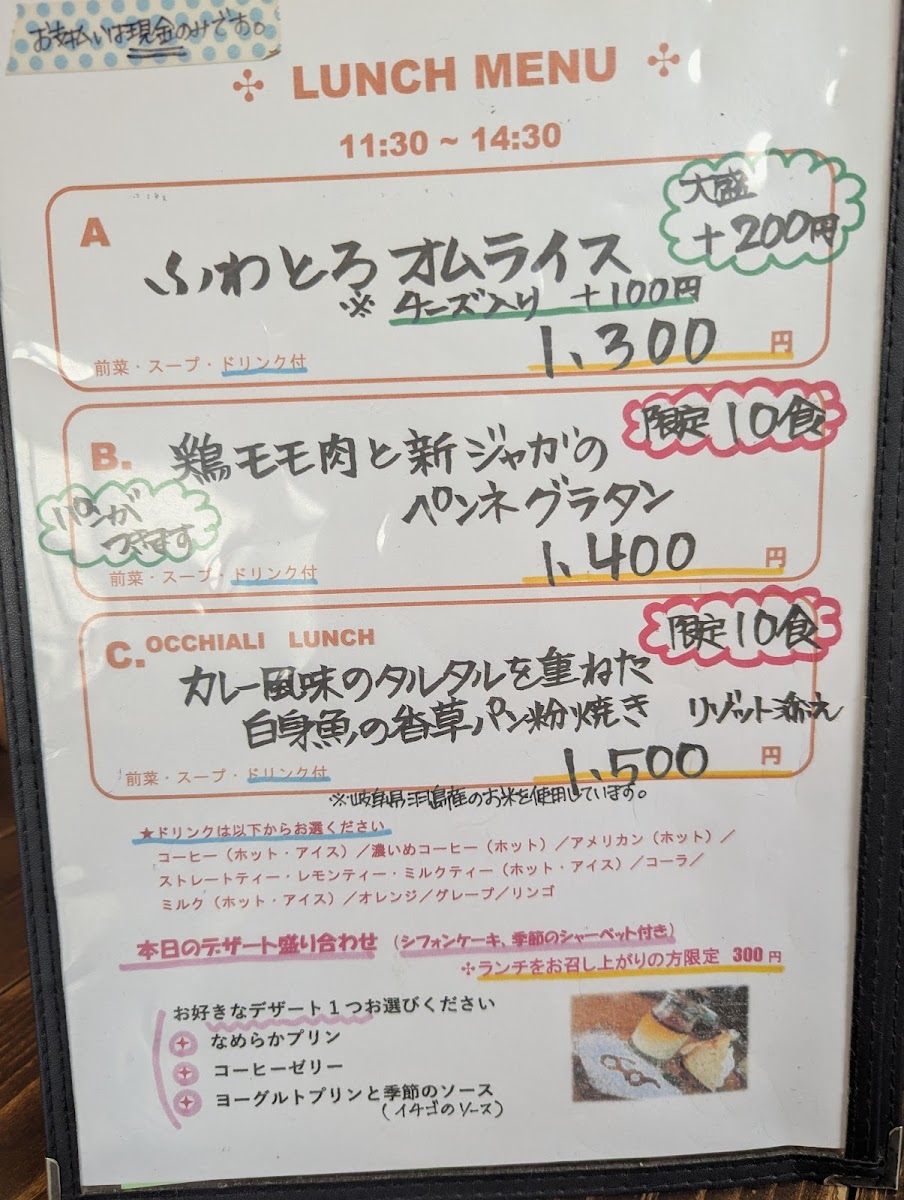 お支払いは現金のみです。
LUNCH MENU
11:30 ~ 14:30
A
大盛
+200円
ふわとろ オムライス
※ チーズ入り +100円
1,300 円
前菜・スープ・ドリンク付
B.
限定10食
鶏モモ肉と新ジャガの
ペンネグラタン
パンが
つきます
1,400 円
前菜・スープ・ドリンク付
C. OCCHIALI LUNCH
限定10食
カレー風味のタルタルを重ねた
白身魚の香草パン粉焼き リゾット添え
1,500 円
前菜・スープ・ドリンク付
※岐阜県羽島産のお米を使用しています。
★ドリンクは以下からお選びください
コーヒー（ホット・アイス）／濃いめコーヒー（ホット）／アメリカン（ホット）／
ストレートティー・レモンティー・ミルクティー（ホット・アイス）／コーラ／
ミルク（ホット・アイス）／オレンジ／グレープ／リンゴ
本日のデザート盛り合わせ （シフォンケーキ、季節のシャーベット付き）
✣ランチをお召し上がりの方限定 300円
お好きなデザート１つお選びください
なめらかプリン
コーヒーゼリー
ヨーグルトプリンと季節のソース
（イチゴのソース）